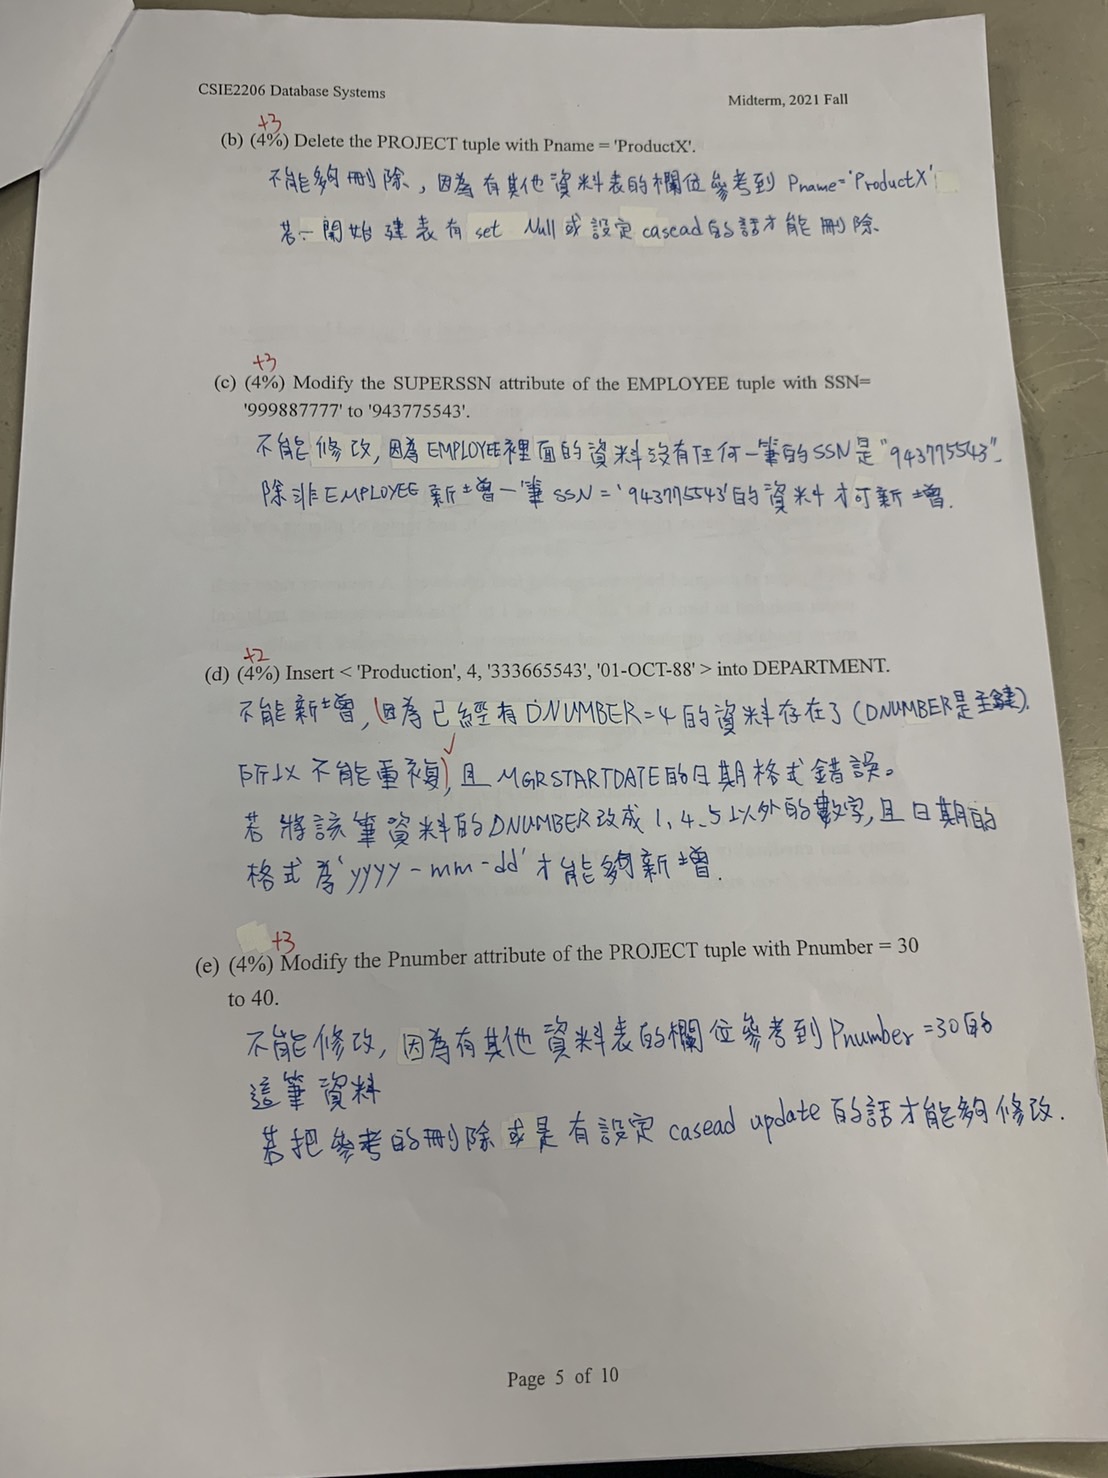 CSIE2206 Database Systems
Midterm, 2021 Fall
+3
(b) (4%) Delete the PROJECT tuple with Pname = 'ProductX'.
不能夠刪除，因為有其他資料表的欄位參考到 Pname='ProductX'
若一開始建表有 set Null 或設定 casead 的話才能刪除.
+3
(c) (4%) Modify the SUPERSSN attribute of the EMPLOYEE tuple with SSN=
'999887777' to '943775543'.
不能修改, 因為 EMPLOYEE 裡面的資料沒有任何一筆的SSN是"943775543"
除非 EMPLOYEE 新增一筆 SSN='943775543'的資料才可新增.
+2
(d) (4%) Insert < 'Production', 4, '333665543', '01-OCT-88' > into DEPARTMENT.
不能新增, (因為已經有 DNUMBER=4 的資料存在了 (DNUMBER是主鍵).
所以不能重複), 且 MGRSTARTDATE的日期格式錯誤。
若將該筆資料的DNUMBER改成 1, 4, 5 以外的數字, 且日期的
格式為'yyyy-mm-dd'才能夠新增.
+3
(e) (4%) Modify the Pnumber attribute of the PROJECT tuple with Pnumber = 30
to 40.
不能修改, 因為有其他資料表的欄位參考到 Pnumber =30的
這筆資料
若把參考的刪除或是有設定 casead update 的話才能夠修改.
Page 5 of 10